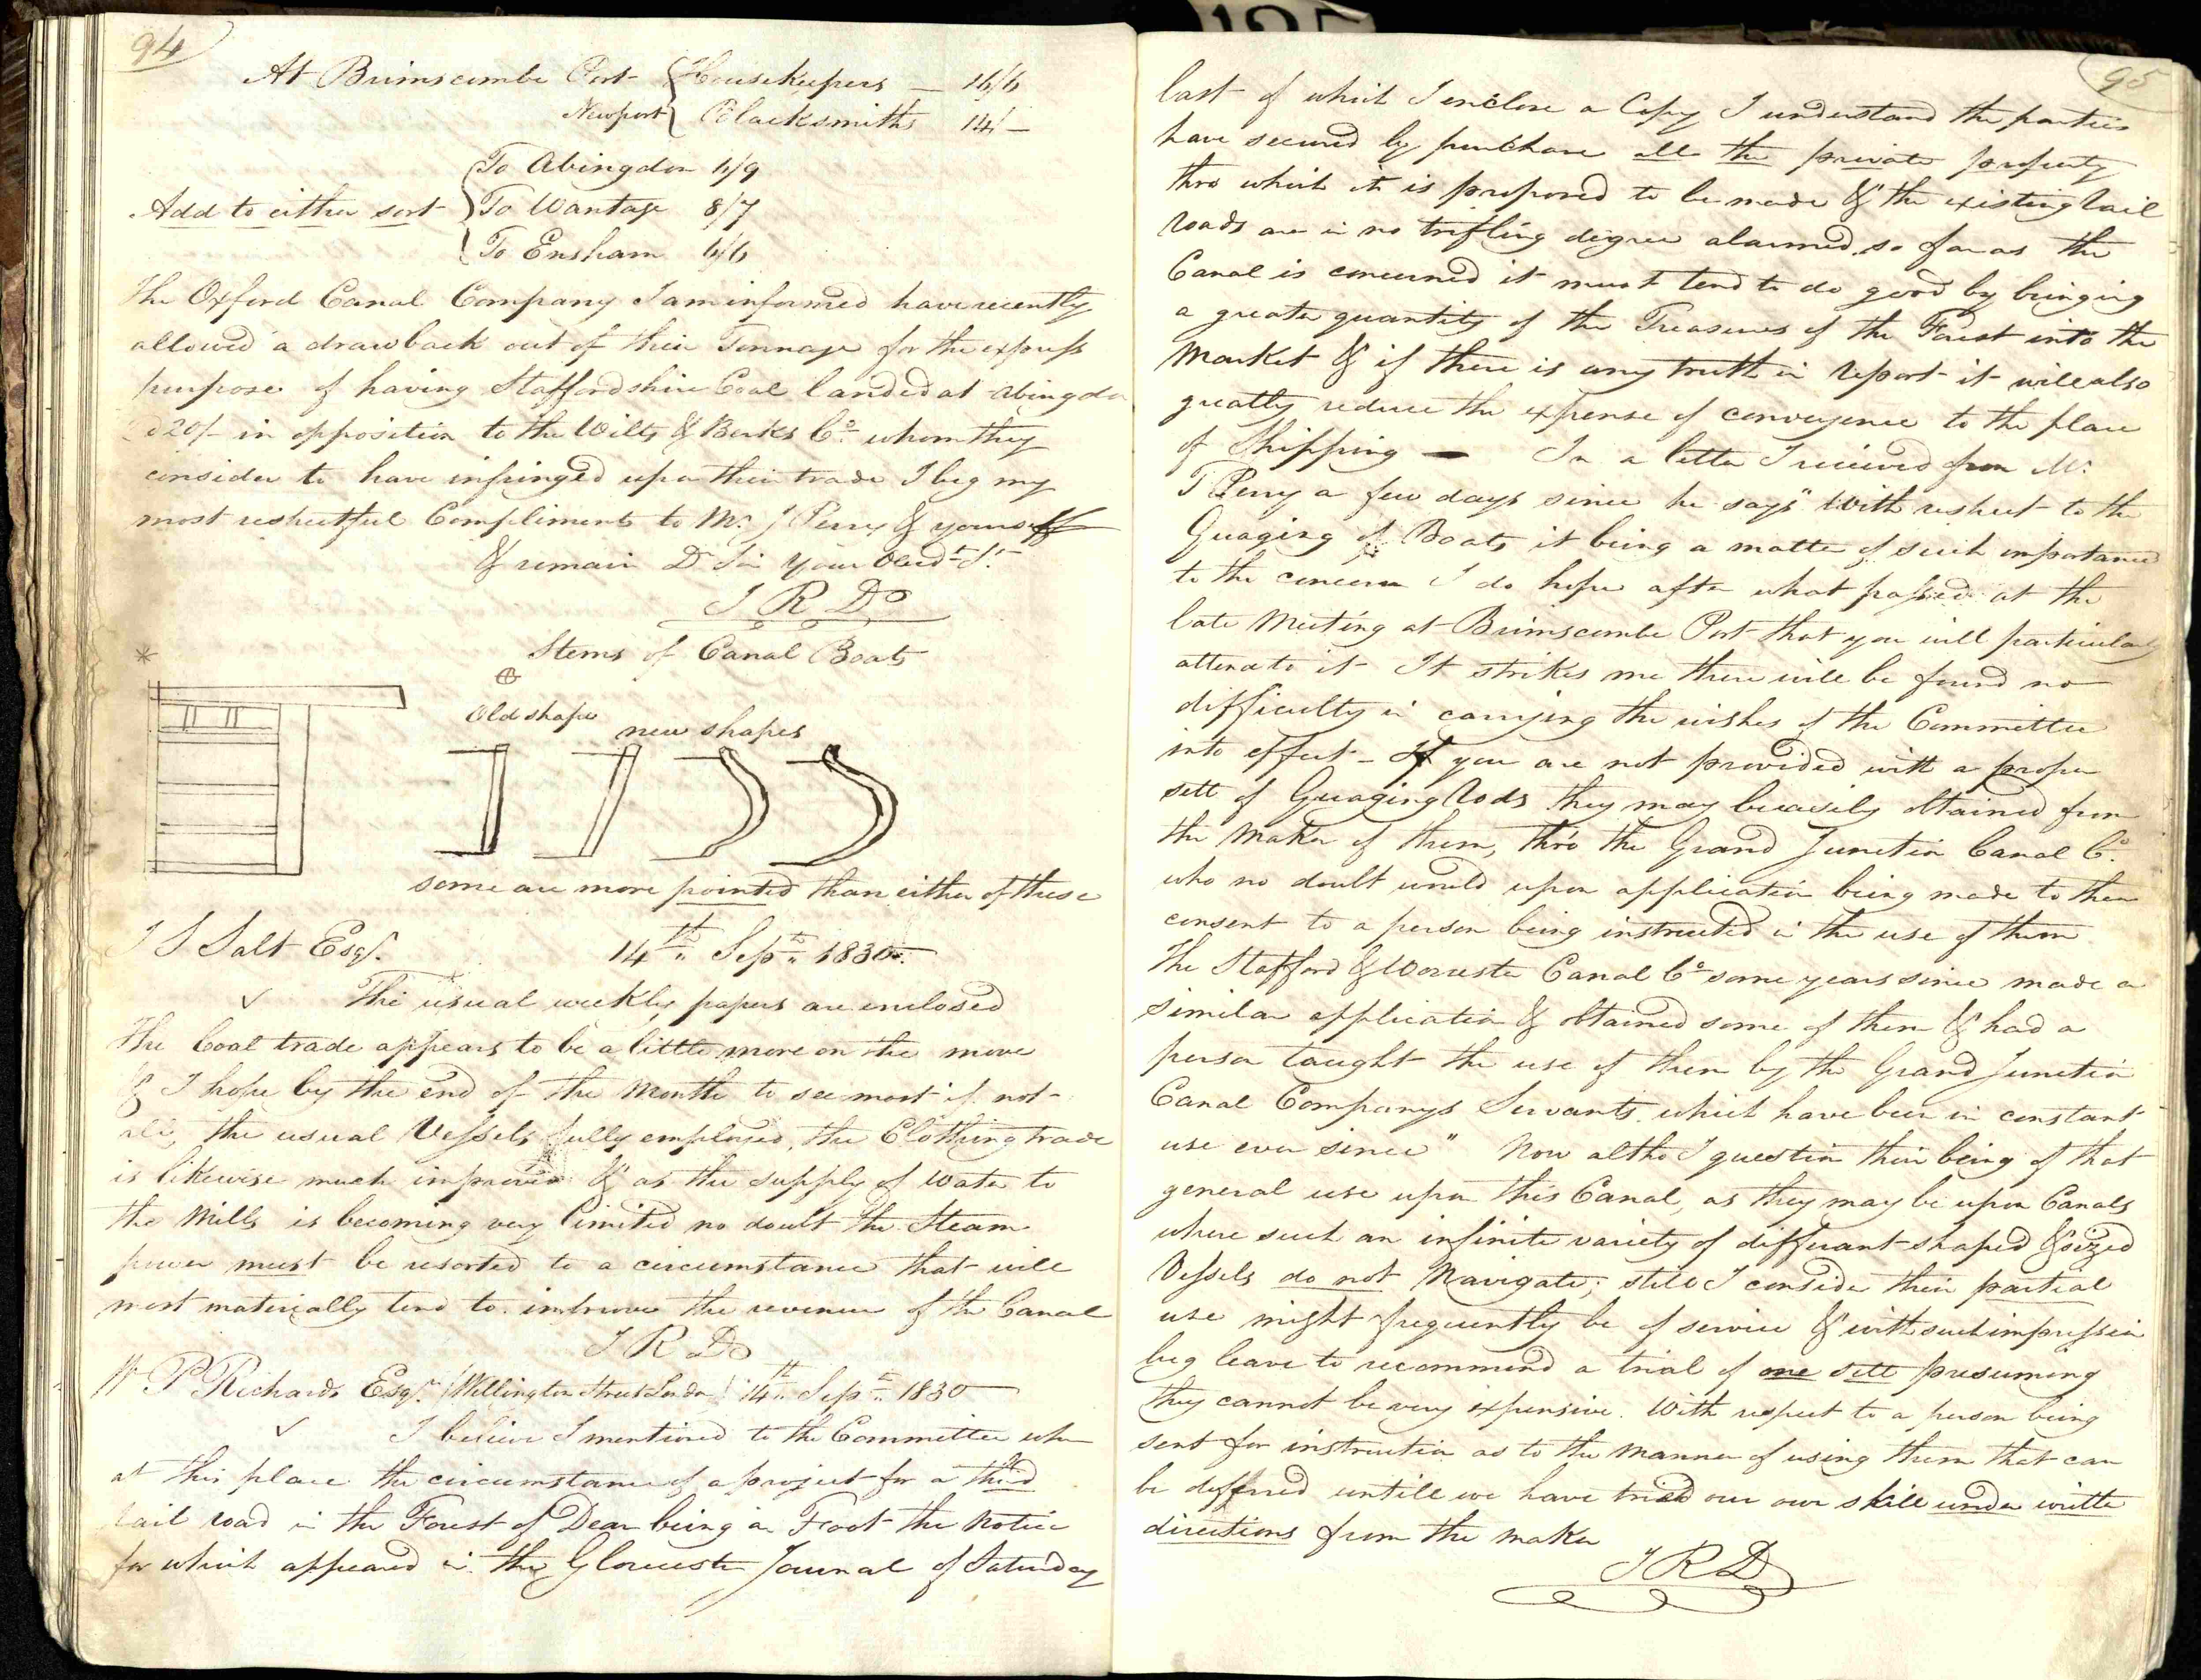 94
At Brimscombe Port { Housekeepers — 16/6
Newport { Blacksmiths 14/-
To Abingdon 4/9
Add to either sort { To Wantage 8/7
To Ensham 6/6
The Oxford Canal Company I am informed have recently
allowed a drawback out of their Tonnage for the express
purpose of having Staffordshire Coal landed at Abingdon
@ 20/- in opposition to the Wilts & Berks Co. whom they
consider to have infringed upon their trade I beg my
most respectful Compliments to Mr. J Perry & yourself
& remain Dr Sir your Obedt. St.
J R Do
Stems of Canal Boats
Old shape
new shapes
some are more pointed than either of these
J S Salt Esqr. 14th. Sept. 1830
The usual weekly papers are enclosed
The Coal trade appears to be a little more on the move
& I hope by the end of the Month to see most if not
all, the usual Vessels fully employed, the Clothing trade
is likewise much improved & as the supply of water to
the Mills is becoming very limited no doubt the Steam
power must be resorted to a circumstance that will
most materially tend to improve the revenue of the Canal
J R Do
W P Richards Esqr. (Wellington Street London) 14th. Sept. 1830
I believe I mentioned to the Committee when
at this place the circumstance of a project for a third
rail road in the Forest of Dean being on Foot the Notice
for which appeared in the Gloucester Journal of Saturday
95
last of which I enclose a Copy I understand the parties
have secured by purchase all the private property
thro which it is proposed to be made & the existing rail
roads are in no trifling degree alarmed, so far as the
Canal is concerned it must tend to do good by bringing
a greater quantity of the Treasures of the Forest into the
Market & if there is any truth in report it will also
greatly reduce the expense of conveyence to the place
of Shipping — In a letter I received from Mr.
T Perry a few days since he says "With respect to the
Guaging of Boats it being a matter of such importance
to the concern I do hope after what passed at the
late Meeting at Brimscombe Port that you will particularly
attend to it It strikes me there will be found no
difficulty in carrying the wishes of the Committee
into effect - If you are not provided with a proper
sett of Guaging Rods they may be easily obtained from
the Maker of them, thro the Grand Junction Canal Co.
who no doubt would upon application being made to them
consent to a person being instructed in the use of them
The Stafford & Worcester Canal Co some years since made a
similar application & obtained some of them & had a
person taught the use of them by the Grand Junction
Canal Companys Servants, which have been in constant
use ever since" Now altho I question their being of that
general use upon this Canal, as they may be upon Canals
where such an infinite variety of differant shaped & sized
Vessels do not Navigate; still I consider their partial
use might frequently be of service & with such impression
beg leave to recommend a trial of one sett presuming
they cannot be very expensive. With respect to a person being
sent for instruction as to the manner of using them that can
be deffered untill we have tried our own skill under written
directions from the maker
J R D